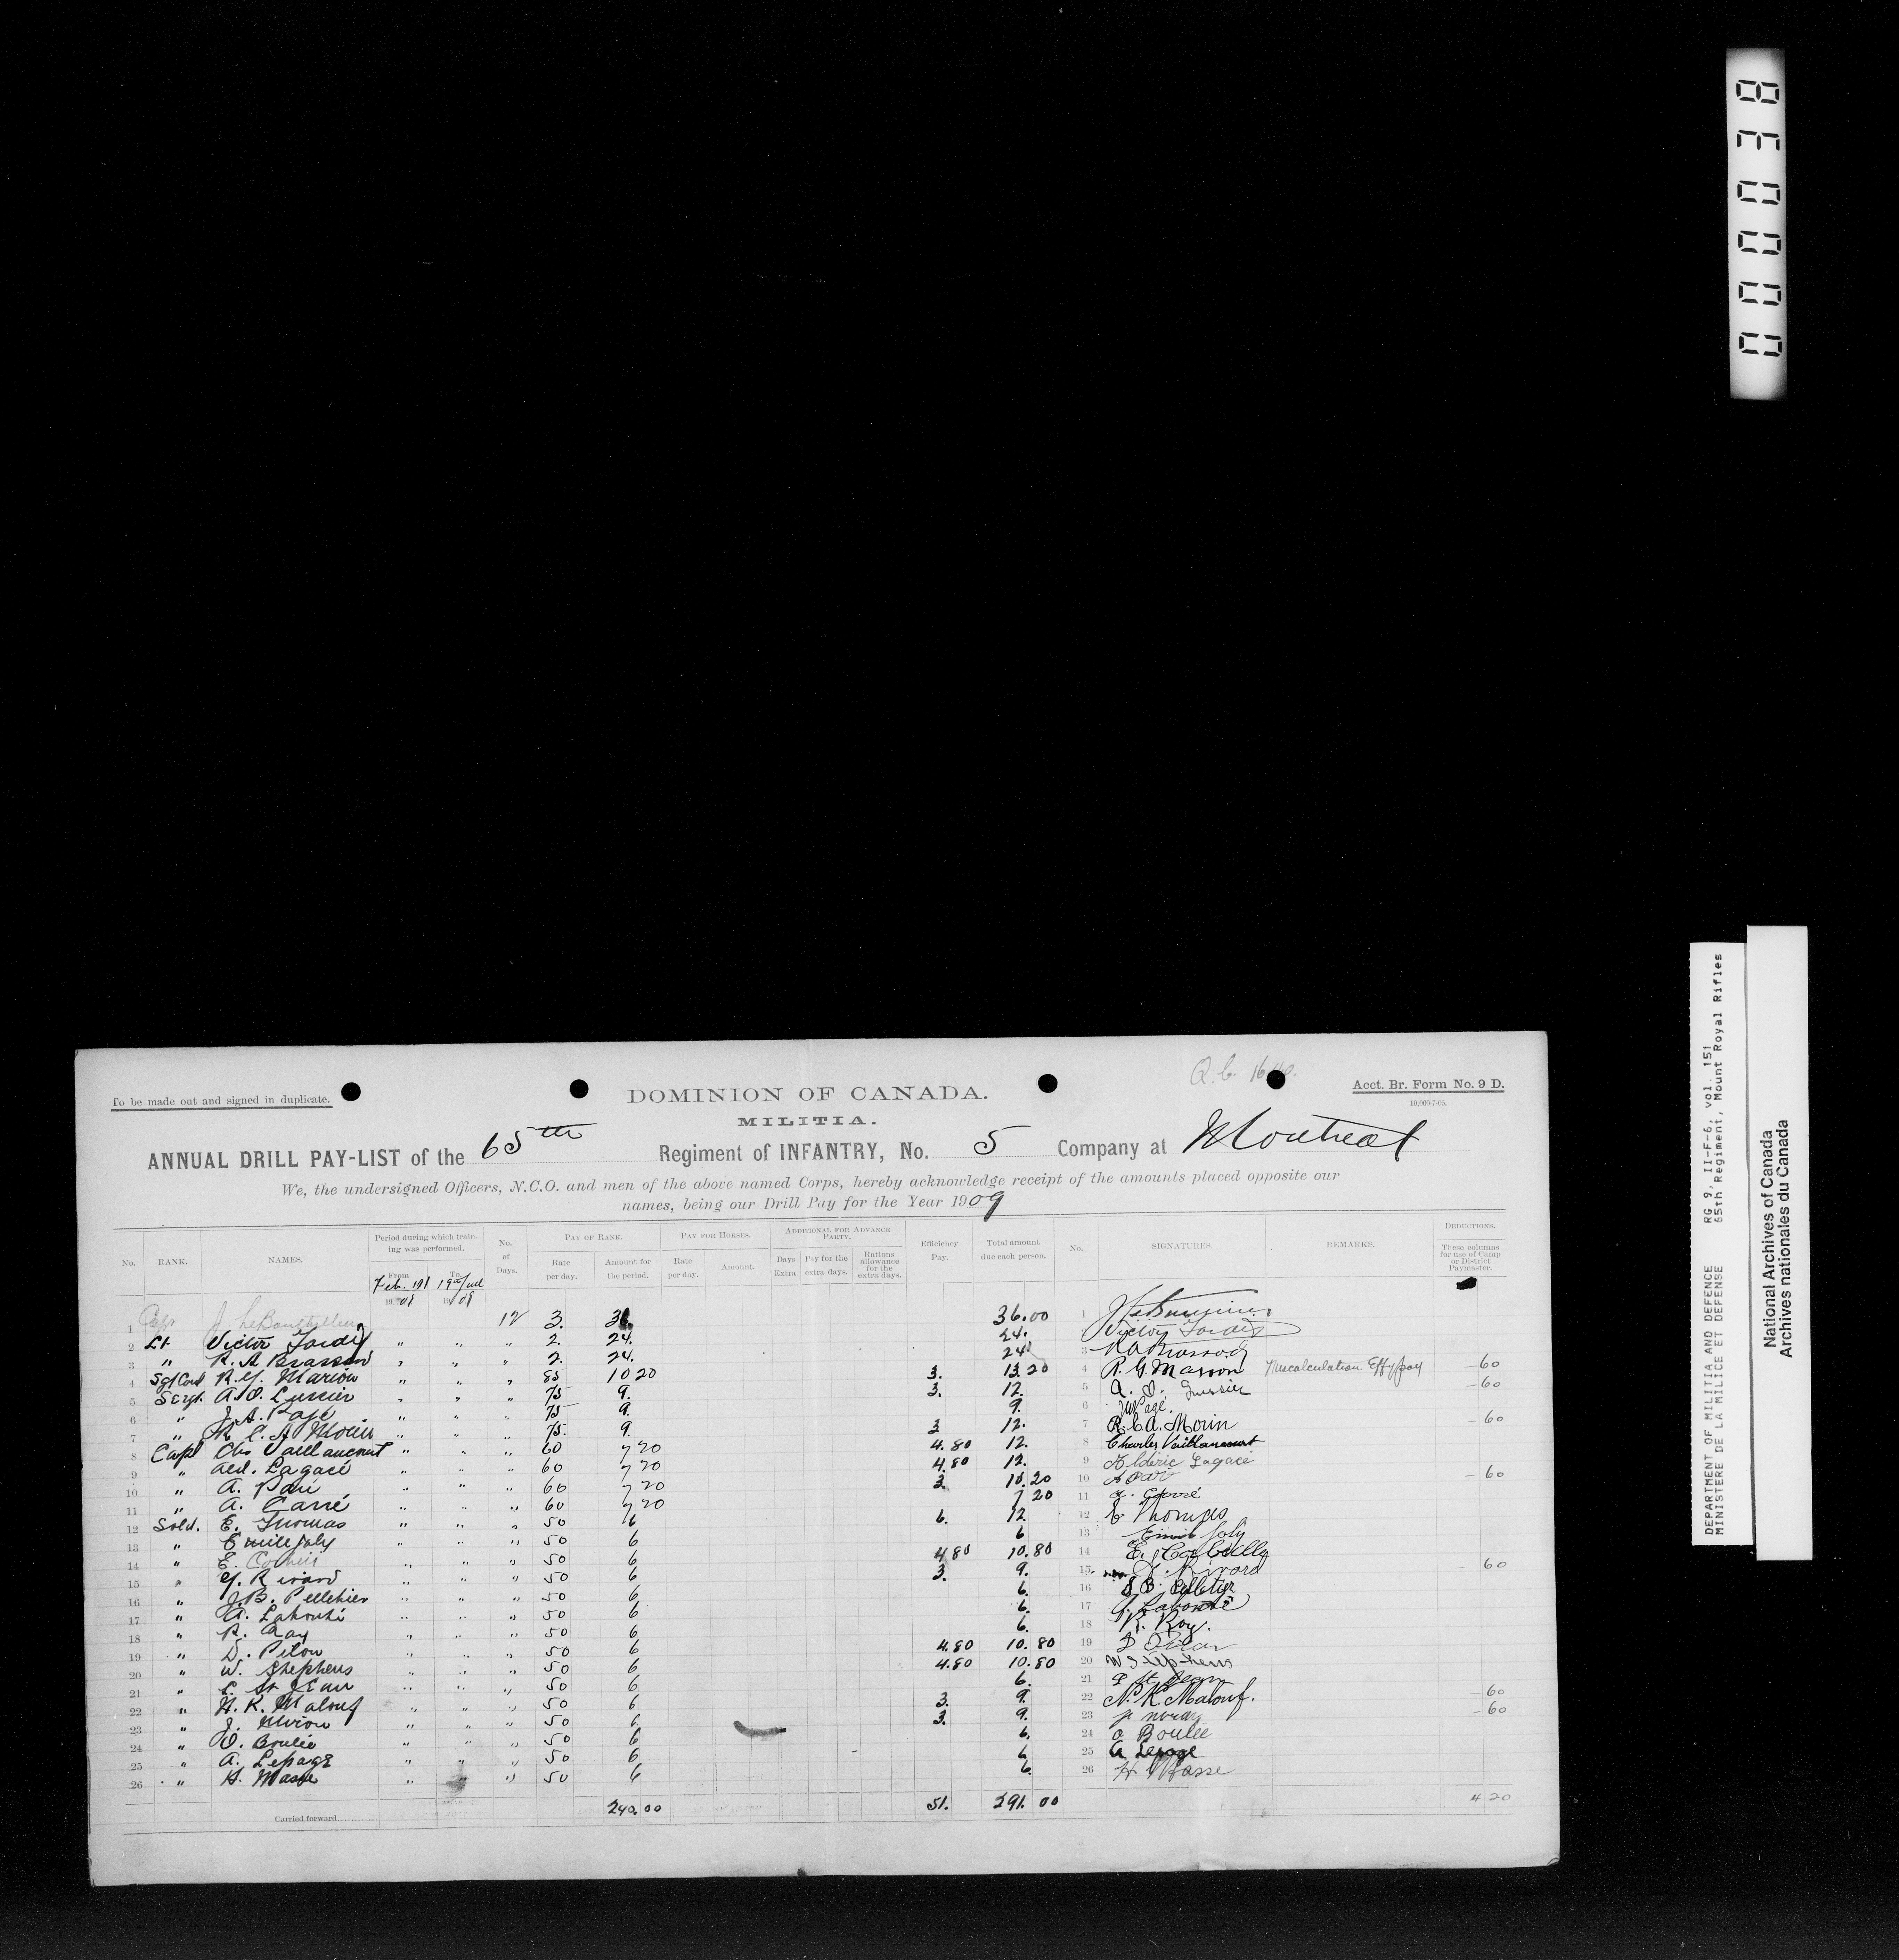 000038
To be made out and signed in duplicate.
DOMINION OF CANADA.
Acct. Br. Form No. 9 D.
10,000-7-05.
MILITIA.
ANNUAL DRILL PAY-LIST of the 65th Regiment of INFANTRY, No. 5 Company at Montreal
We, the undersigned Officers, N.C.O. and men of the above named Corps, hereby acknowledge receipt of the amounts placed opposite our
names, being our Drill Pay for the Year 1909
No. RANK. NAMES. Period during which training was performed. From To No. of Days. PAY OF RANK. Rate per day. Amount for the period. PAY FOR HORSES. Rate per day. Amount. ADDITIONAL FOR ADVANCE PARTY. Days Extra Pay for the extra days. Rations allowance for the extra days. Efficiency Pay. Total amount due each person. No. SIGNATURES. REMARKS. DEDUCTIONS. These columns for use of Camp or District Paymaster.
1 Capt J. 12 3. 36. 36.00 1
2 Lt Victor " " " 2. 24. 24. Victor
3 " R. A Brassard " " " 2. 24. 24 3 R A Brassard
4 R. G. Marion " " " 85 10 20 3. 13.20 4 R. G. Marion Miscalculation Effy pay — 60
5 Sergt. A. O. Lussier " " " 75 9. 3. 12. 5 A. O. Lussier — 60
6 " J. A. Page " " " 75 9. 9. 6 JA Page.
7 " R. C. A Morin " " " 75. 9. 3 12. 7 R. C. A. Morin — 60
8 Corpl Chs Vaillancourt " " " 60 7 20 4.80 12. 8 Charles Vaillancourt
9 " Ald. Lagacé " " " 60 7 20 4.80 12. 9 Aldéric Lagacé
10 " A. Paré " " " 60 7 20 3. 10.20 10 A Paré — 60
11 " A. Carré " " " 60 7 20 7 20 11 A. Carré
12 Sold. E. Thomas " " " 50 6 6. 12. 12 E Thomas
13 " Emile Joly " " " 50 6 6 13 Emile Joly
14 " E. " " " 50 6 4 80 10.80 14 E. Corbeille
15 " Y. Rivard " " " 50 6 3. 9. 15 Rivard — 60
16 " J. B. Pelletier " " " 50 6 6. 16 J B. Pelletier
17 " A. Labonté " " " 50 6 6. 17 A. Labonté
18 " R. Roy " " " 50 6 6. 18 R. Roy.
19 " D. Pilon " " " 50 6 4.80 10.80 19 D Pilon
20 " W. Stephens " " " 50 6 4.80 10.80 20 W Stephens
21 " E. St Jean " " " 50 6 6. 21 E St Jean
22 " N. K. Malouf " " " 50 6 3. 9. 22 N. K. Malouf. — 60
23 " J. " " " 50 6. 3. 9. 23 — 60
24 " O. Boulée " " " 50 6 6. 24 O Boulée
25 " A. Lepage " " " 50 6 6 25 A Lepage
26 " H. Masse " " " 50 6 6. 26 H Masse
Carried forward 240.00 51. 291.00 4 20
DEPARTMENT OF MILITIA AND DEFENCE RG 9, II-F-6, vol. 151
MINISTERE DE LA MILICE ET DEFENSE 65th Regiment, Mount Royal Rifles
National Archives of Canada
Archives nationales du Canada